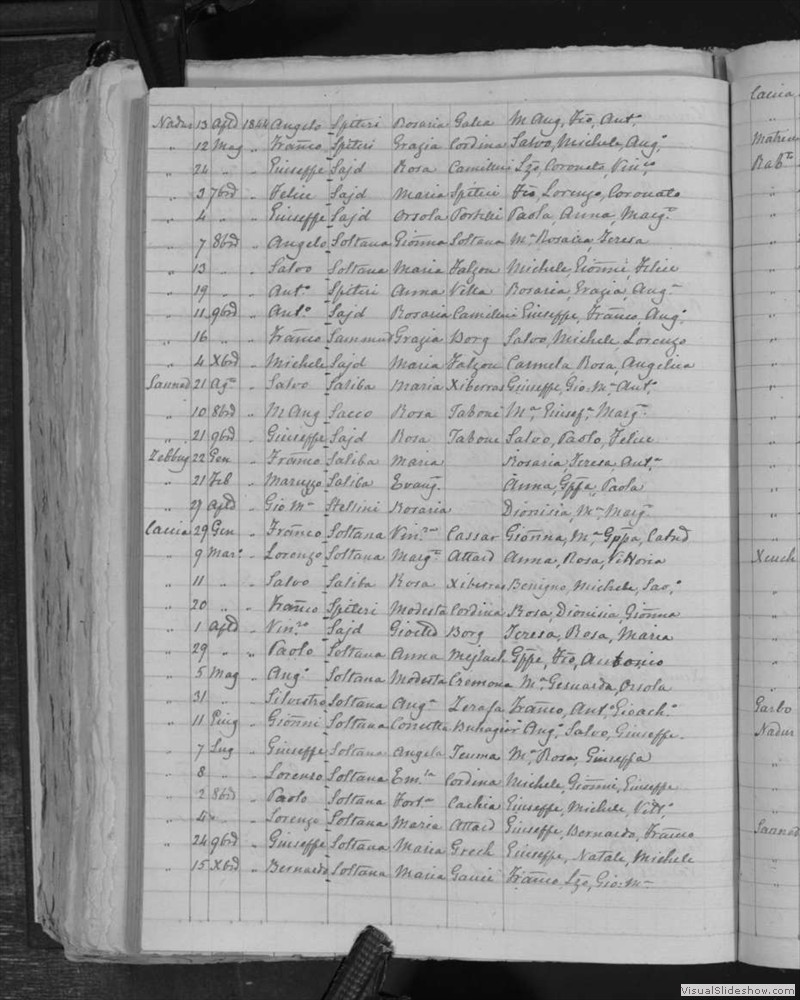 Nadur 13 Aple 1844 Angelo Spiteri Rosaria Galea M Ang, Fio, Ant.o
" 12 Mag " Franco Spiteri Grazia Cordina Salvo, Michele, Ang.o
" 24 " " Giuseppe Sajd Rosa Camilleri Lzo, Coronato, Vin.zo
" 3 7bre " Felice Sajd Maria Spiteri Lorenzo, Coronato
" 4 " " Giuseppe Sajd Orsola Portelli Paola, Anna, Marg.a
" 7 8bre " Angelo Soltana Gionna Soltana M.a Rosaria, Teresa
" 13 " " Salvo Soltana Maria Falzon Michele, Gionni, Felice
" 19 " " Ant.o Spiteri Anna Vella Rosaria, Grazia, Aug.a
" 11 9bre " Ant.o Sajd Rosaria Camilleri Giuseppe, Franco, Ang.o
" 16 " " Franco Sammut Grazia Borg Salvo, Michele Lorenzo
" 4 Xbre " Michele Sajd Maria Falzon Carmela, Rosa, Angelica
Sannat 21 Ag.to " Salvo Saliba Maria Xiberras Giuseppe, Gio. M.a Ant.o
" 10 8bre " M Ang Sacco Rosa Tabone M.a Giusef.a Marg.a
" 21 9bre " Giuseppe Sajd Rosa Tabone Salvo, Paolo, Felice
Zebbug 22 Gen " Franco Saliba Maria Rosaria, Teresa, Ant.a
" 21 Feb " Maruzzo Saliba Evang. Anna, Gppa, Paola
" 27 Aple " Gio M.a Stellini Rosaria Dionisia, M.a Marg.a
Caccia 29 Gen " Franco Soltana Vin.za Cassar Gionna, M.a Gppa, Catnd
" 9 Mar.o " Lorenzo Soltana Marg.a Attard Anna, Rosa, Vittoria
" 11 " " Salvo Saliba Rosa Xiberras Benigno, Michele, Sav.o
" 20 " " Franco Spiteri Modesta Cordina Rosa, Dionisia, Gionna
" 1 Aple " Vin.zo Sajd Borg Teresa, Rosa, Maria
" 29 " " Paolo Soltana Anna Mejlach Gppe, Fio, Antonio
" 5 Mag " Ang.o Soltana Modesta Cremona M.a Gesuarda, Orsola
" 31 " Silvestro Soltana Ang.a Zerafa Franco, Ant.o Gioach.o
" 11 Giug " Gionni Soltana Concetta Buhagiar Ang.o Salvo, Giuseppe.
" 7 Lug " Giuseppe Soltana Angela Teuma M.a Rosa, Giuseppa
" 8 " " Lorenzo Soltana Em.la Cordina Michele, Gionni, Giuseppe
" 2 8bre " Paolo Soltana Fort.a Cachia Giuseppe, Michele, Vitt.o
" 4 " " Lorenzo Soltana Maria Attard Giuseppe, Bernardo, Franco
" 24 9bre " Giuseppe Soltana Maria Grech Giuseppe, Natale, Michele
" 15 Xbre " Bernardo Soltana Maria Gauci Franco, Lzo, Gio. M.a
Caccia
Rab.to
Xeuch
Garbo
Nadur
Sannat
VisualSlideshow.com